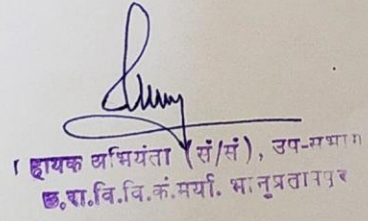 सहायक अभियंता (सं/सं), उप-संभाग
छ.रा.वि.वि.कं.मर्या. भानुप्रतापपुर